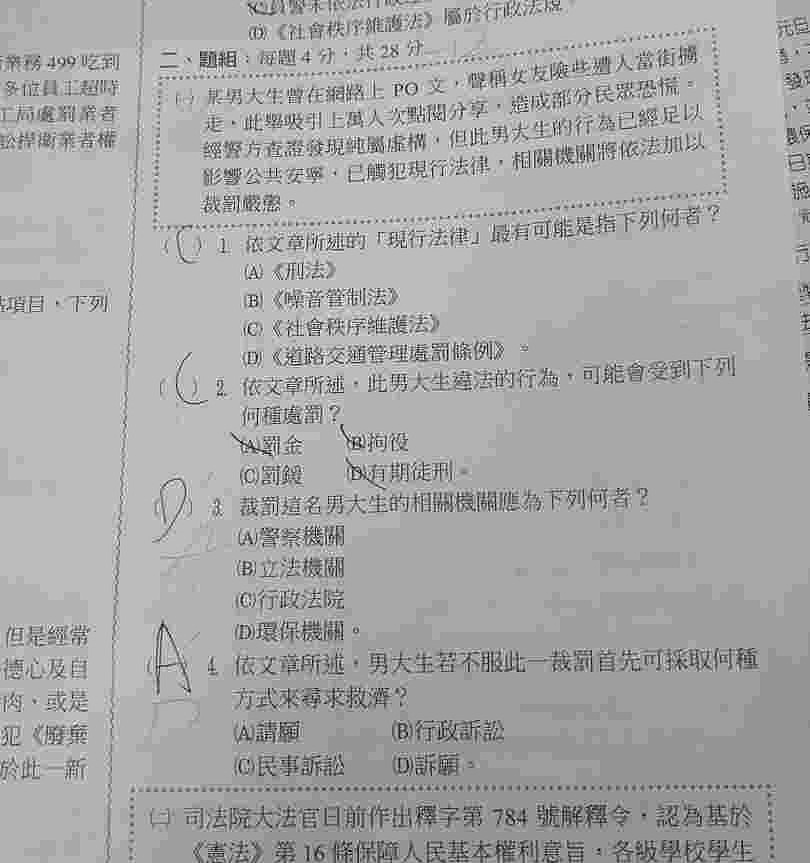 (D)《社會秩序維護法》屬於行政法規。
業務 499 吃到
多位員工超時
工局處罰業者
訟捍衛業者權
二、題組：每題 4 分，共 28 分
㈠ 某男大生曾在網路上 PO 文，聲稱女友險些遭人當街擄
走，此舉吸引上萬人次點閱分享，造成部分民眾恐慌。
經警方查證發現純屬虛構，但此男大生的行為已經足以
影響公共安寧，已觸犯現行法律，相關機關將依法加以
裁罰嚴懲。
(C) 1. 依文章所述的「現行法律」最有可能是指下列何者？
(A)《刑法》
(B)《噪音管制法》
(C)《社會秩序維護法》
(D)《道路交通管理處罰條例》。
項目，下列
(C) 2. 依文章所述，此男大生違法的行為，可能會受到下列
何種處罰？
(A)罰金 (B)拘役
(C)罰鍰 (D)有期徒刑。
(D) 3. 裁罰這名男大生的相關機關應為下列何者？
(A)警察機關
(B)立法機關
(C)行政法院
(D)環保機關。
但是經常
德心及自
肉、或是
犯《廢棄
於此一新
(A) 4. 依文章所述，男大生若不服此一裁罰首先可採取何種
方式來尋求救濟？
(A)請願 (B)行政訴訟
(C)民事訴訟 (D)訴願。
㈡ 司法院大法官日前作出釋字第 784 號解釋令，認為基於
《憲法》第 16 條保障人民基本權利意旨，各級學校學生